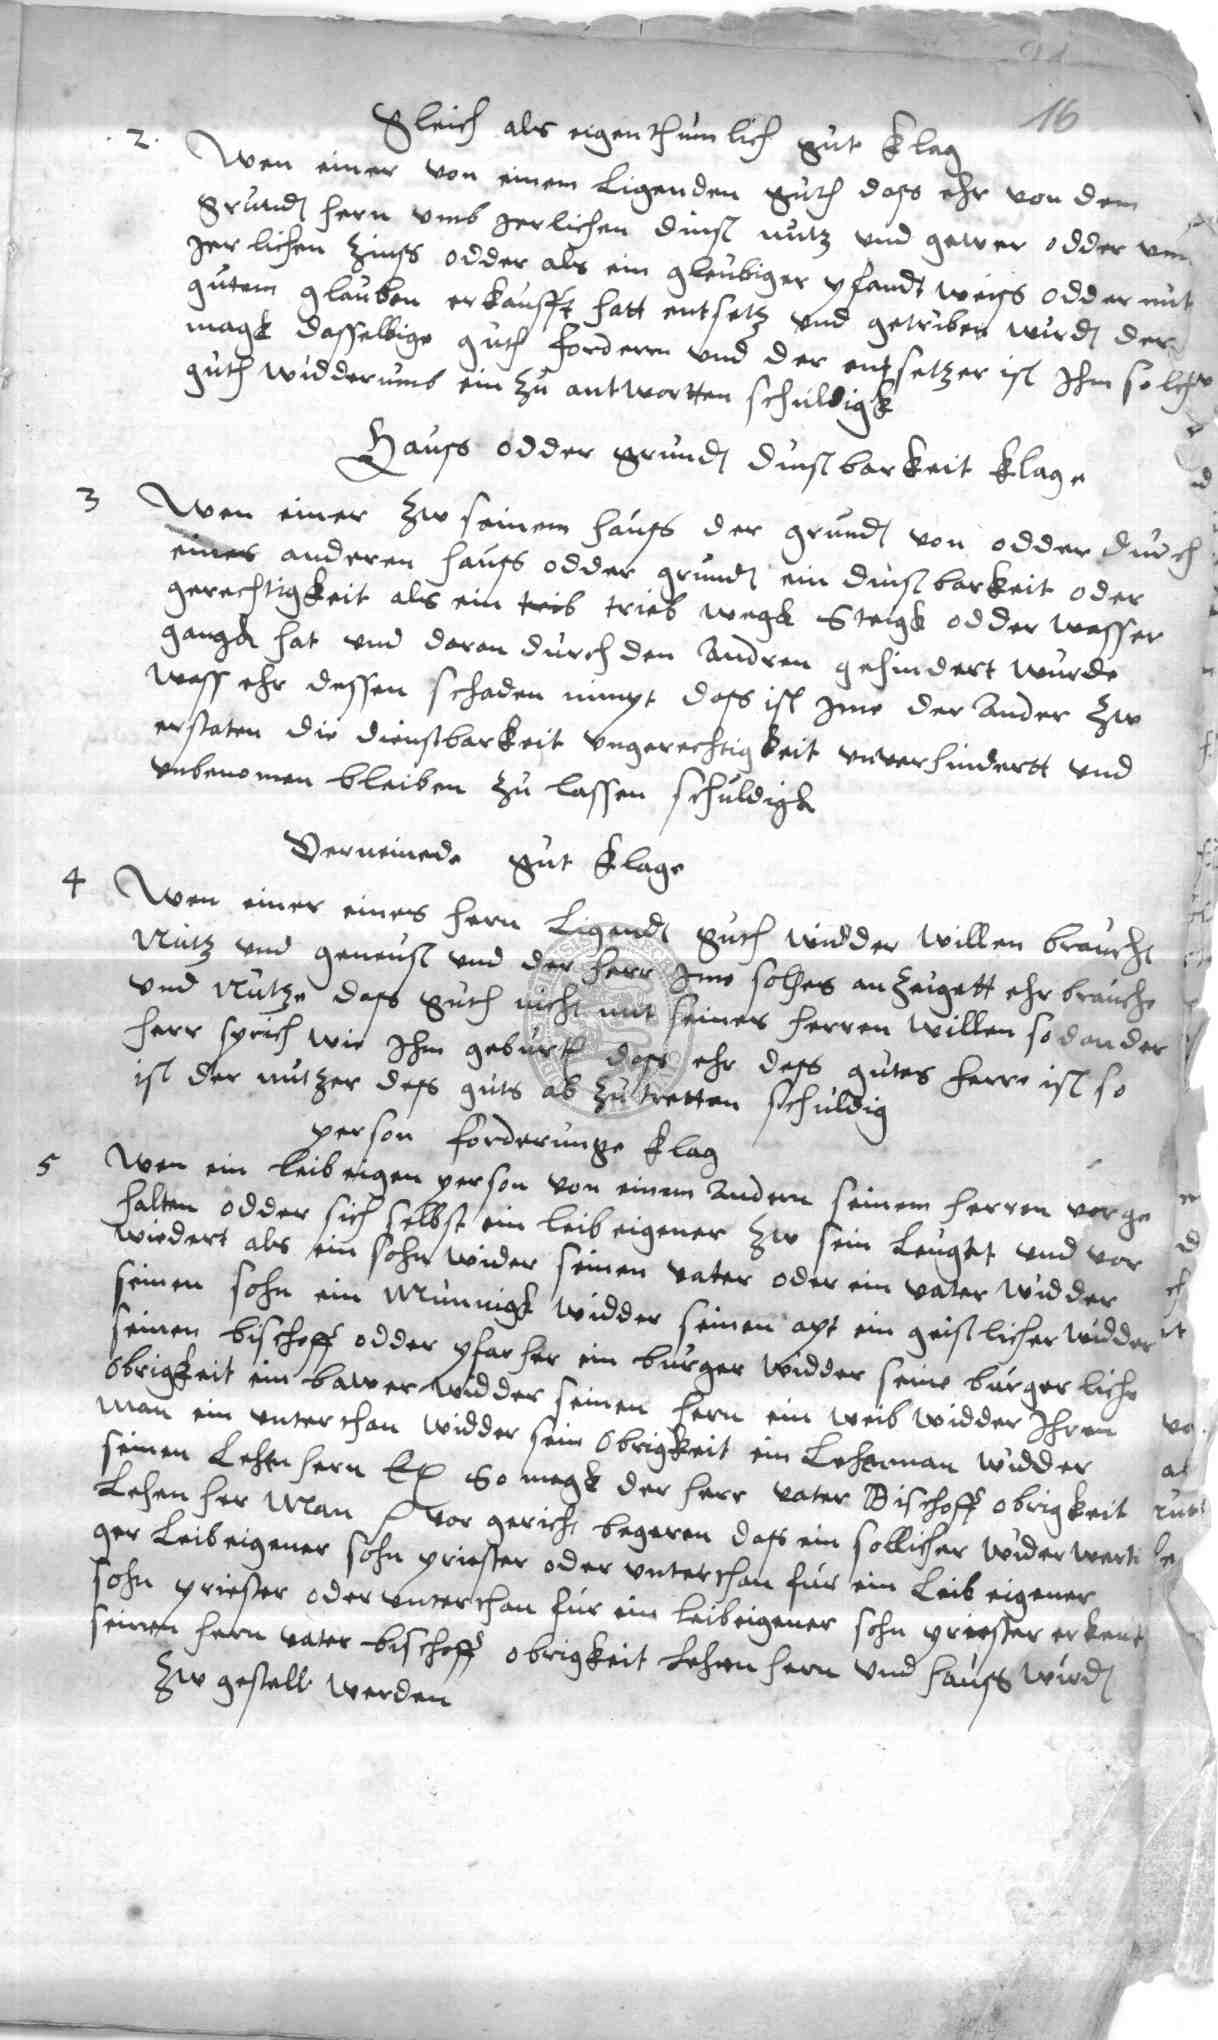 16
Gleich als eigenthumlich gut klag
2. Wen einer von einem Ligenden guth dass ehr von dem
grundt hern umb Jerlichen dinst nutz und gewer odder um
Jerlichen Zinss odder als ein gleubiger pfandt weiss odder mit
gutem glauben erkaufft hatt entsetz und getriben wurdt der
magk dasselbige guth fordern und der entsetzer ist Ihm solch
guth widderumb ein zu antwortten schuldigk
Hauss odder grundt dinstbarkeit klage
3 Wen einer zw seinem hauss der grundt von odder durch
eines anderen hauss odder grundt ein dinstbarkeit oder
gerechtigkeit als ein trib trieb wegk Steigk odder wasser
gangk hat und daran durch den Andren gehindert wurde
wass ehr dessen schaden nimpt dass ist Ime der Ander zw
erstaten die dienstbarkeit ungerechtigkeit unverhindertt und
unbenomen bleiben zu lassen schuldigk
Verneinede gut klage
4 Wen einer eines hern Ligendt guth widder willen braucht
Nutz und geneust und der herr Ime solhes anzeigett ehr brauche
und Nutze dass guth nicht mit seines herren willen so dan der
herr sprich wie Ihm geburtt dass ehr dess gutes herre ist so
ist der nutzer dess guts ab zu tretten schuldig
person forderunge klag
5 Wen ein leibeigen person von einem Andern seinem herren vorge
halten odder sich selbst ein leibeigener zw sein Leugket und vor
wiedert als ein sohn wider seinen vater oder ein vater widder
seinen sohn ein Munnigk widder seinen apt ein geistlicher widder
seinen bischoff odder pfarher ein burger widder seine burgerliche
Obrigkeit ein bawer widder seinen hern ein weib widder Ihren
Man ein unterthan widder sein Obrigkeit ein Lehenman widder
seinen Lehen hern So magk der herr vater Bischoff obrigkeit
Lehen her Man vor gericht begeren dass ein sollicher widerwerti
ger Leibeigener sohn priester oder unterthan fur ein Leibeigener
sohn priester oder unterthan fur ein leibeigener sohn priester erkent
seinen hern vater bischoff obrigkeit Lehen hern und hauss wirdt
zw gestelt werden